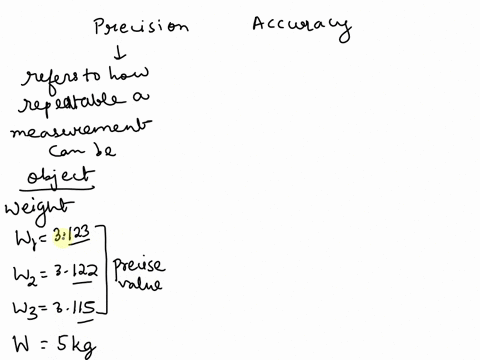 Precision Accuracy
↓
refers to how
repeatable a
measurement
can be
object
Weight
W₁ = 3.123
W₂ = 3.122
W₃ = 3.115
precise
value
W = 5kg